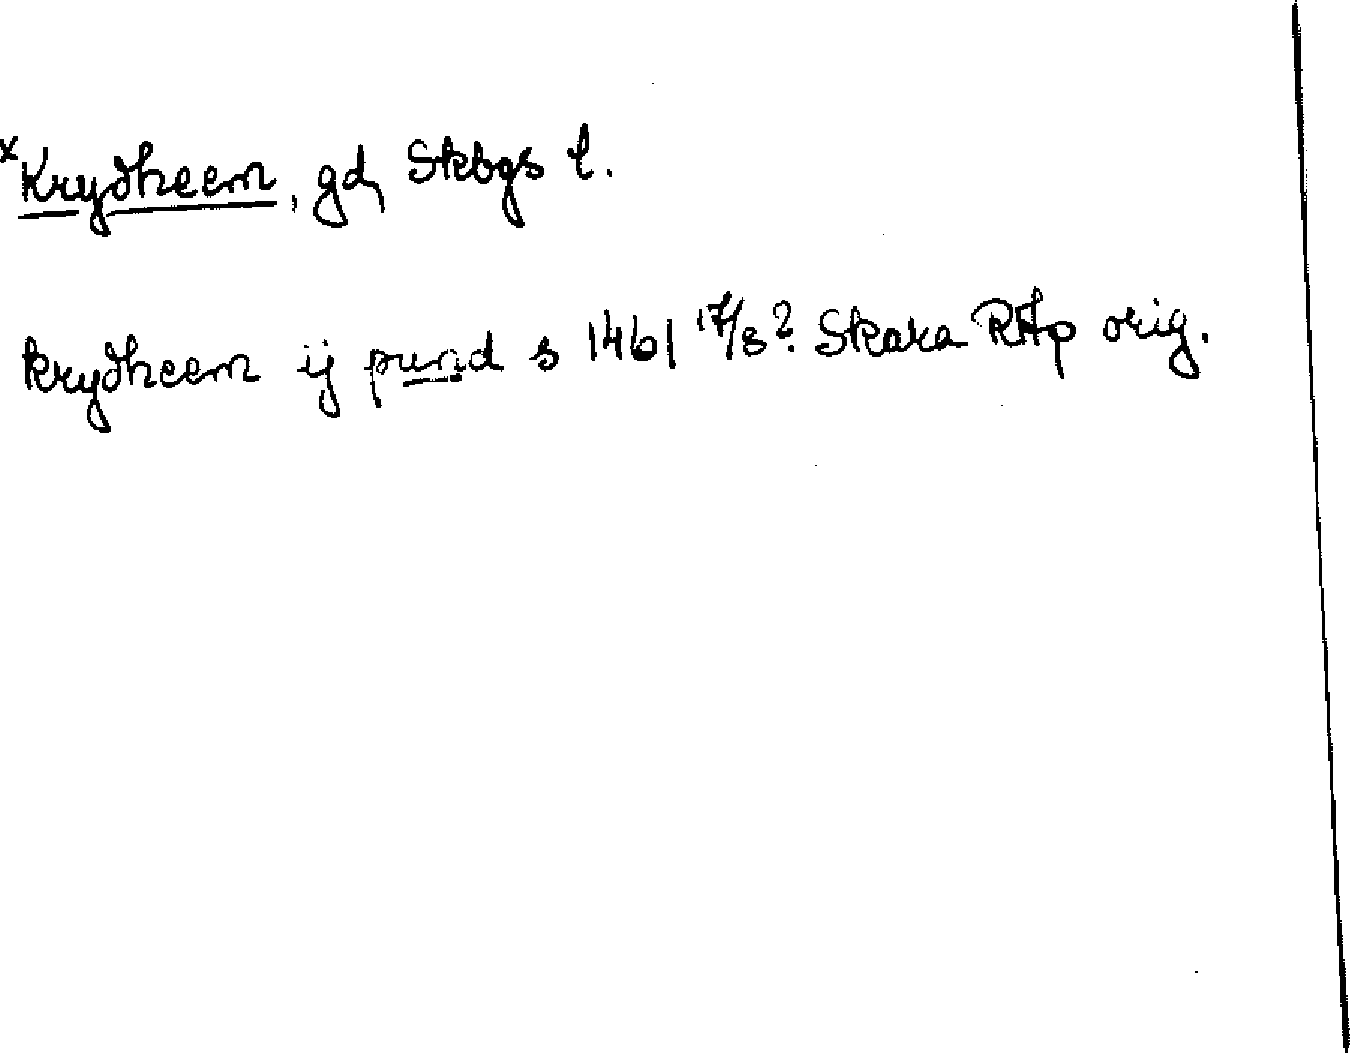 x Krydheem, gd, Skbgs l.
krydheem ij pund s 1461 17/8? Skara RAp orig.